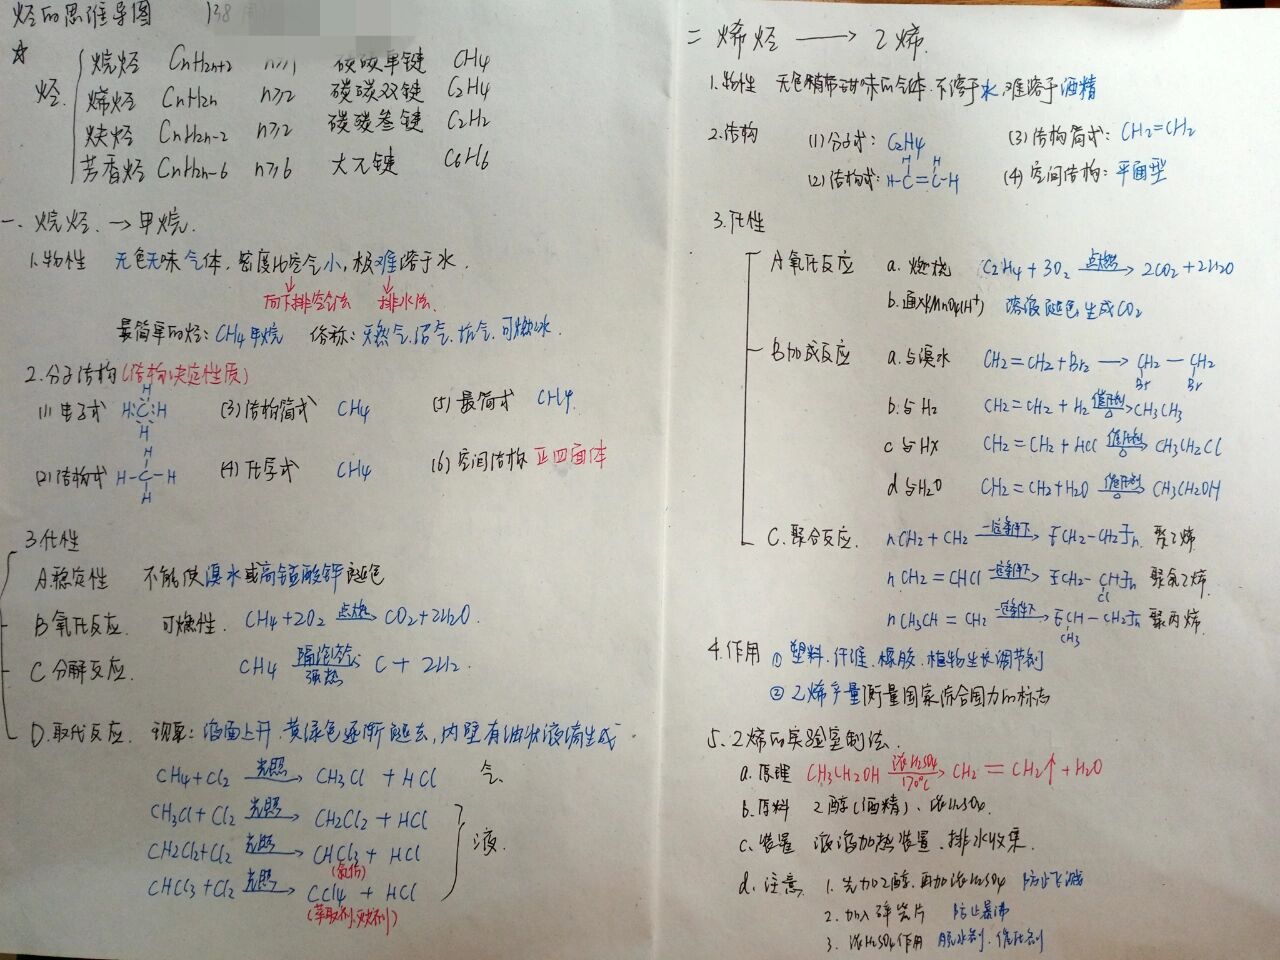 烃的思维导图 138
☆
烃
烷烃 CnH2n+2 n≥1 碳碳单键 CH4
烯烃 CnH2n n≥2 碳碳双键 C2H4
炔烃 CnH2n-2 n≥2 碳碳叁键 C2H2
芳香烃 CnH2n-6 n≥6 大π键 C6H6
一、烷烃 → 甲烷.
1.物性 无色无味气体,密度比空气小,极难溶于水.
向下排空气法 排水法.
最简单的烃: CH4 甲烷 俗称: 天然气.沼气.坑气.可燃冰.
2.分子结构(结构决定性质)
(1)电子式 H:C:H H H (3)结构简式 CH4 (5)最简式 CH4
(2)结构式 H-C-H H H (4)化学式 CH4 (6)空间结构 正四面体
3.化性
A.稳定性 不能使溴水或高锰酸钾褪色
B氧化反应. 可燃性. CH4+2O2 点燃→ CO2+2H2O.
C分解反应. CH4 隔绝空气 强热→ C+2H2.
D.取代反应. 现象: 液面上升.黄绿色逐渐褪去,内壁有油状液滴生成
CH4+Cl2 光照→ CH3Cl + HCl 气.
CH3Cl+Cl2 光照→ CH2Cl2 + HCl
CH2Cl2+Cl2 光照→ CHCl3 + HCl 液.
(氯仿)
CHCl3+Cl2 光照→ CCl4 + HCl
(萃取剂.灭火剂)
二 烯烃 → 乙烯.
1.物性 无色稍带甜味的气体.不溶于水,难溶于酒精
2.结构 (1)分子式: C2H4 (3)结构简式: CH2=CH2
(2)结构式: H-C=C-H H H (4)空间结构: 平面型
3.化性
A氧化反应 a.燃烧 C2H4+3O2 点燃→ 2CO2+2H2O
b.通入KMnO4(H+) 溶液褪色生成CO2
B加成反应 a.与溴水 CH2=CH2+Br2 → CH2-CH2
Br Br
b.与H2 CH2=CH2+H2 催化剂 △→ CH3CH3
c与HX CH2=CH2+HCl 催化剂 △→ CH3CH2Cl
d与H2O CH2=CH2+H2O 催化剂 △→ CH3CH2OH
C.聚合反应. nCH2+CH2 一定条件下→ [CH2-CH2]n. 聚乙烯
nCH2=CHCl 一定条件→ [CH2-CH]n 聚氯乙烯
Cl
nCH3CH=CH2 一定条件下→ [CH-CH2]n 聚丙烯.
CH3
4.作用 ①塑料.纤维.橡胶.植物生长调节剂
②乙烯产量衡量国家综合国力的标志
5、乙烯的实验室制法.
a.原理 CH3CH2OH 浓H2SO4 170°C→ CH2=CH2↑+H2O
b.原料 乙醇(酒精)、浓H2SO4.
c.装置 液液加热装置.排水收集.
d.注意. 1.先加乙醇,再加浓H2SO4 防止飞溅
2.加入碎瓷片 防止暴沸
3.浓H2SO4作用 脱水剂.催化剂